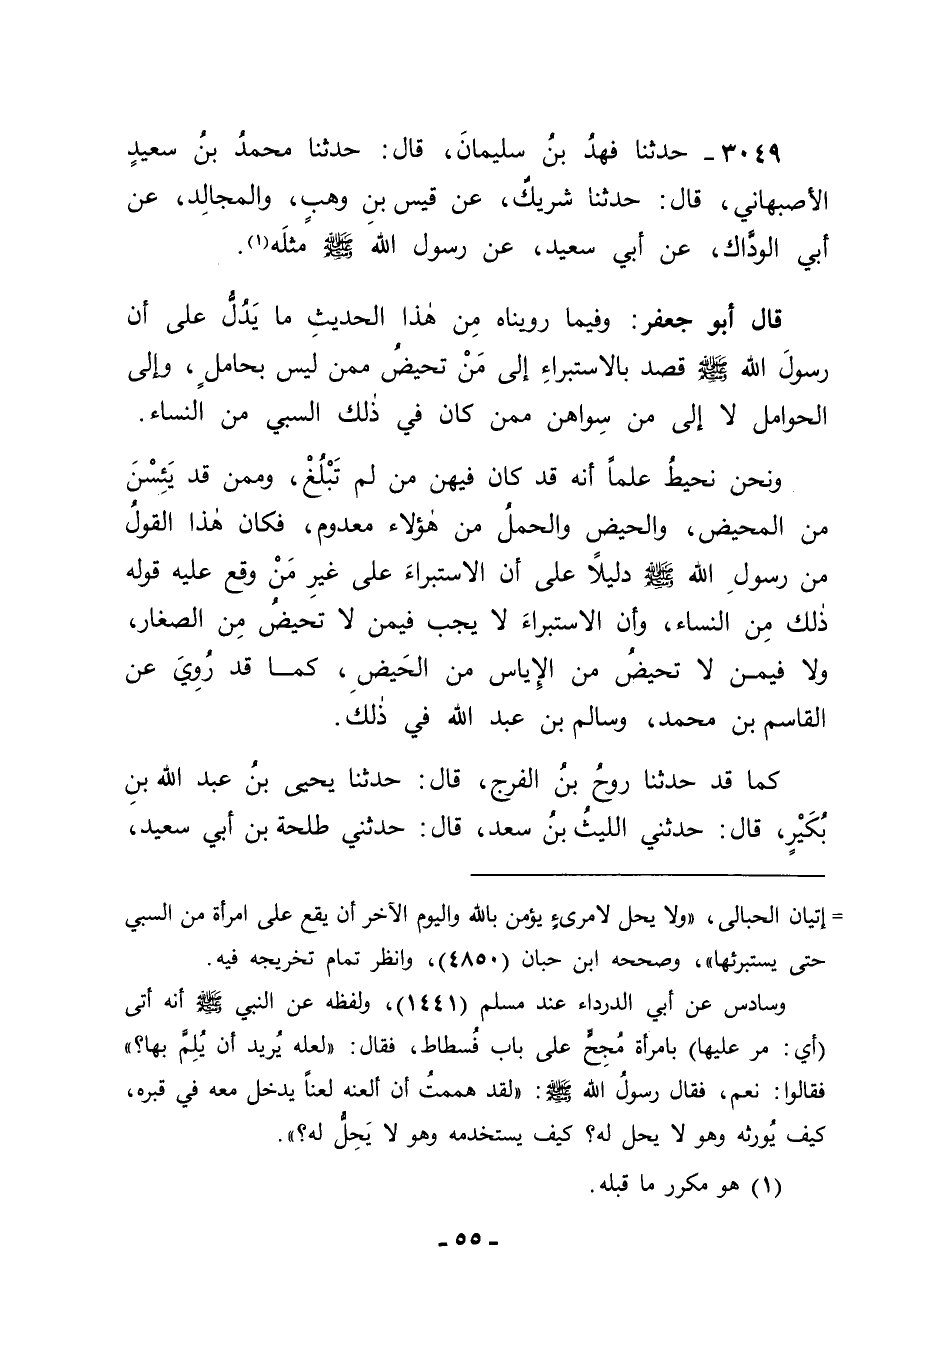 ٣٠٤٩ ـ حدثنا فهدُ بنُ سليمانَ، قال: حدثنا محمدُ بنُ سعيدٍ
الأصبهاني، قال: حدثنا شريكٌ، عن قيس بنِ وهبٍ، والمجالِد، عن
أبي الودَّاك، عن أبي سعيد، عن رسول الله ﷺ مثلَه(١).
قال أبو جعفر: وفيما رويناه مِن هٰذا الحديثِ ما يَدُلُّ على أن
رسولَ الله ﷺ قصد بالاستبراءِ إلى مَنْ تحيضُ ممن ليس بحاملٍ، وإلى
الحوامل لا إلى من سِواهن ممن كان في ذٰلك السبي من النساء.
ونحن نحيطُ علماً أنه قد كان فيهن من لم تَبْلُغْ، وممن قد يَئِسْنَ
من المحيض، والحيض والحملُ من هٰؤلاء معدوم، فكان هٰذا القولُ
من رسولِ الله ﷺ دليلاً على أن الاستبراءَ على غيرِ مَنْ وقع عليه قوله
ذٰلك مِن النساء، وأن الاستبراءَ لا يجب فيمن لا تحيضُ مِن الصغار،
ولا فيمن لا تحيضُ من الإِياس من الحَيضِ، كما قد رُوِيَ عن
القاسم بن محمد، وسالم بن عبد الله في ذٰلك.
كما قد حدثنا روحُ بنُ الفرج، قال: حدثنا يحيى بنُ عبد الله بنِ
بُكَيْرٍ، قال: حدثني الليثُ بنُ سعد، قال: حدثني طلحة بن أبي سعيد،
= إتيان الحبالى، «ولا يحل لامرىءٍ يؤمن بالله واليوم الآخر أن يقع على امرأة من السبي
حتى يستبرئها»، وصححه ابن حبان (٤٨٥٠)، وانظر تمام تخريجه فيه.
وسادس عن أبي الدرداء عند مسلم (١٤٤١)، ولفظه عن النبي ﷺ أنه أتى
(أي: مر عليها) بامرأة مُجِحٍّ على باب فُسطاط، فقال: «لعله يُريد أن يُلِمَّ بها؟»
فقالوا: نعم، فقال رسولُ الله ﷺ: «لقد هممتُ أن ألعنه لعناً يدخل معه في قبره،
كيف يُورثه وهو لا يحل له؟ كيف يستخدمه وهو لا يَحِلُّ له؟».
(١) هو مكرر ما قبله.
ـ ٥٥ ـ